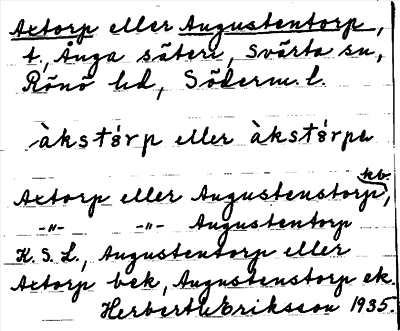 Axtorp eller Augustentorp,
t., Ånga säteri, Svärta sn,
Rönö hd, Söderm. l.
àkstɵrp eller àkstɵrpa
Axtorp eller Augustenstorp, kb.
-"- -"- Augustentorp
K.S.L., Augustentorp eller
Axtorp bek, Augustenstorp ek.
Herbert Eriksson 1935.